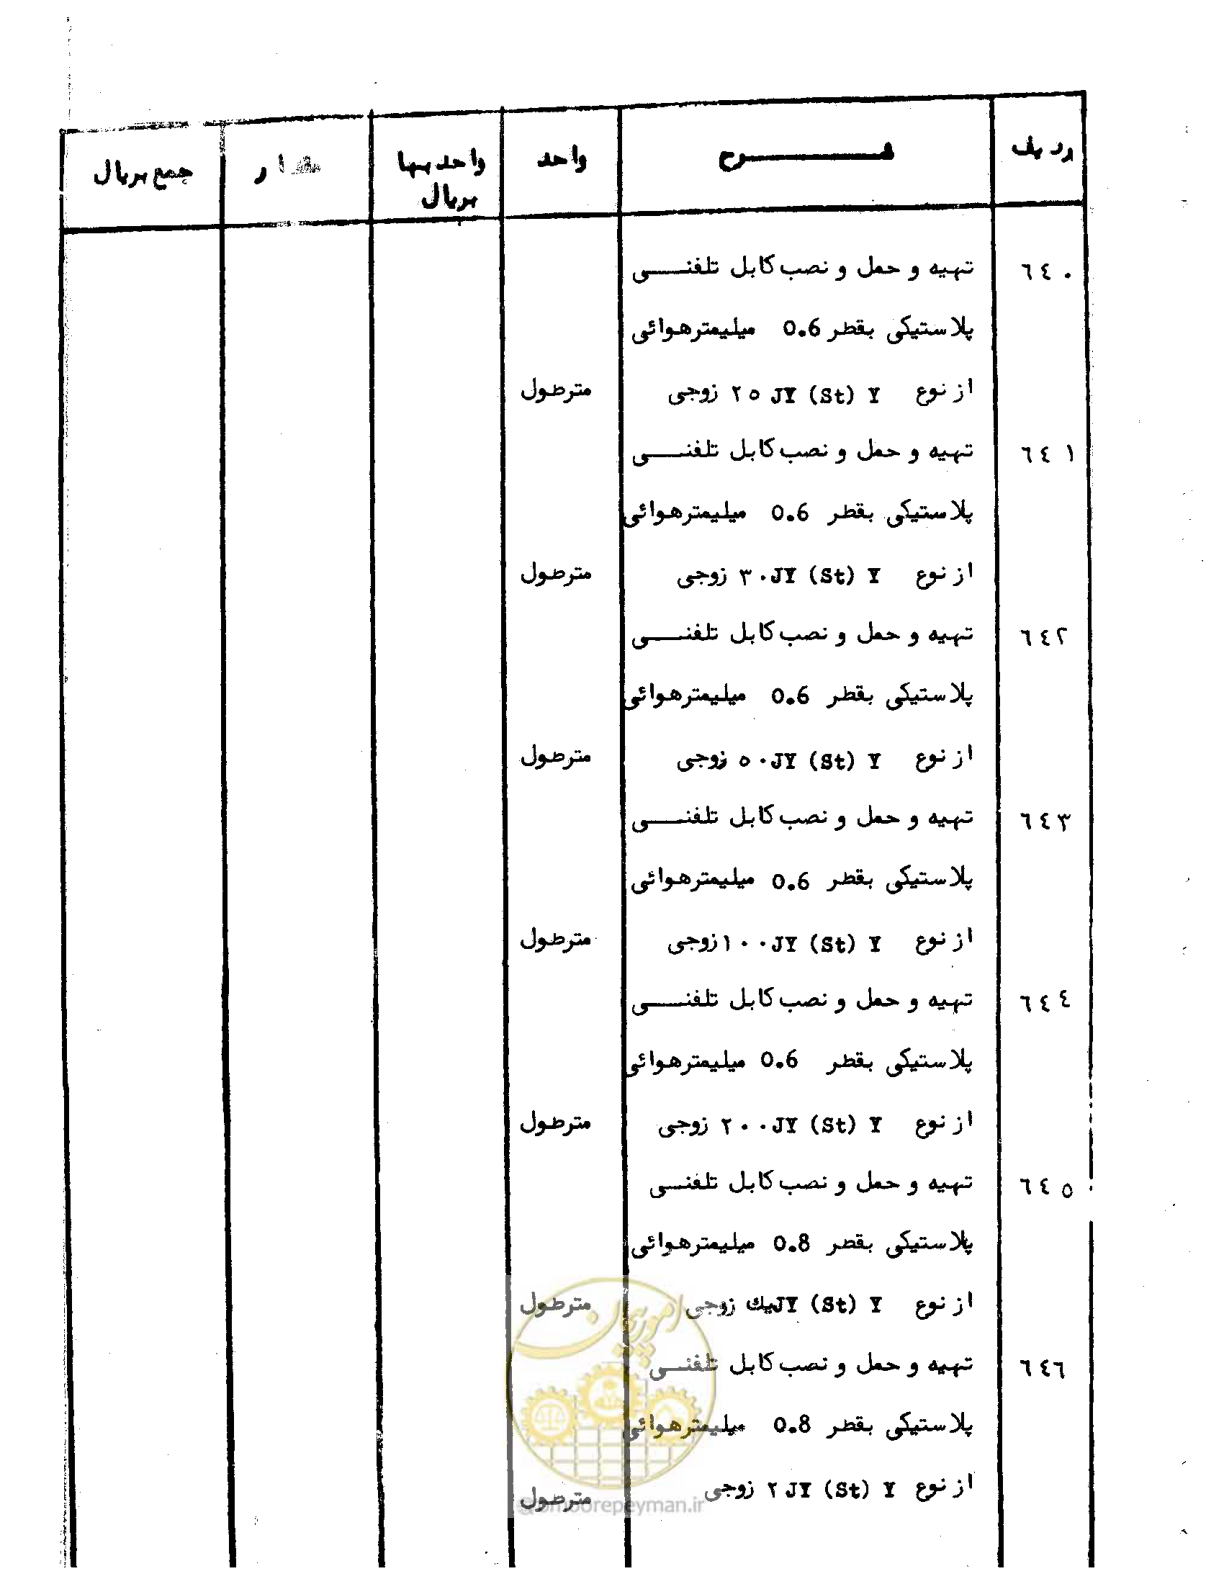 ردیف شـــــرح واحد واحد بها مقدار جمع بریال
بریال
٦٤٠ تهیه و حمل و نصب کابل تلفنـــی
پلاستیکی بقطر 0.6 میلیمترهوائی
از نوع JY (St) Y ٢٥ زوجی مترطول
٦٤١ تهیه و حمل و نصب کابل تلفنـــی
پلاستیکی بقطر 0.6 میلیمترهوائی
از نوع JY (St) Y ٣٠ زوجی مترطول
٦٤٢ تهیه و حمل و نصب کابل تلفنـــی
پلاستیکی بقطر 0.6 میلیمترهوائی
از نوع JY (St) Y ٥٠ زوجی مترطول
٦٤٣ تهیه و حمل و نصب کابل تلفنـــی
پلاستیکی بقطر 0.6 میلیمترهوائی
از نوع JY (St) Y ١٠٠ زوجی مترطول
٦٤٤ تهیه و حمل و نصب کابل تلفنـــی
پلاستیکی بقطر 0.6 میلیمترهوائی
از نوع JY (St) Y ٢٠٠ زوجی مترطول
٦٤٥ تهیه و حمل و نصب کابل تلفنــی
پلاستیکی بقطر 0.8 میلیمترهوائی
از نوع JY (St) Y یك زوجی مترطول
٦٤٦ تهیه و حمل و نصب کابل تلفنــی
پلاستیکی بقطر 0.8 میلیمترهوائی
از نوع JY (St) Y ٢ زوجی مترطول
امور پیمان
@omoorepeyman.ir